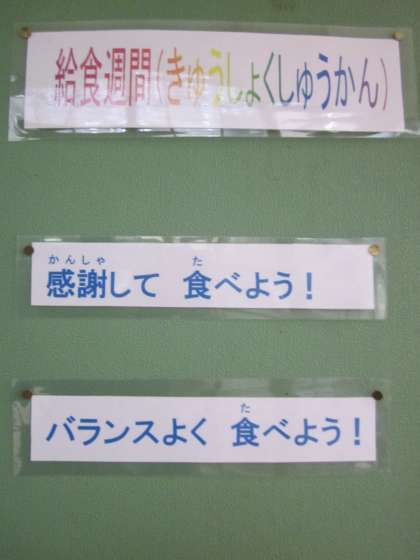 給食週間(きゅうしょくしゅうかん)
かんしゃ た
感謝して 食べよう!
た
バランスよく 食べよう!